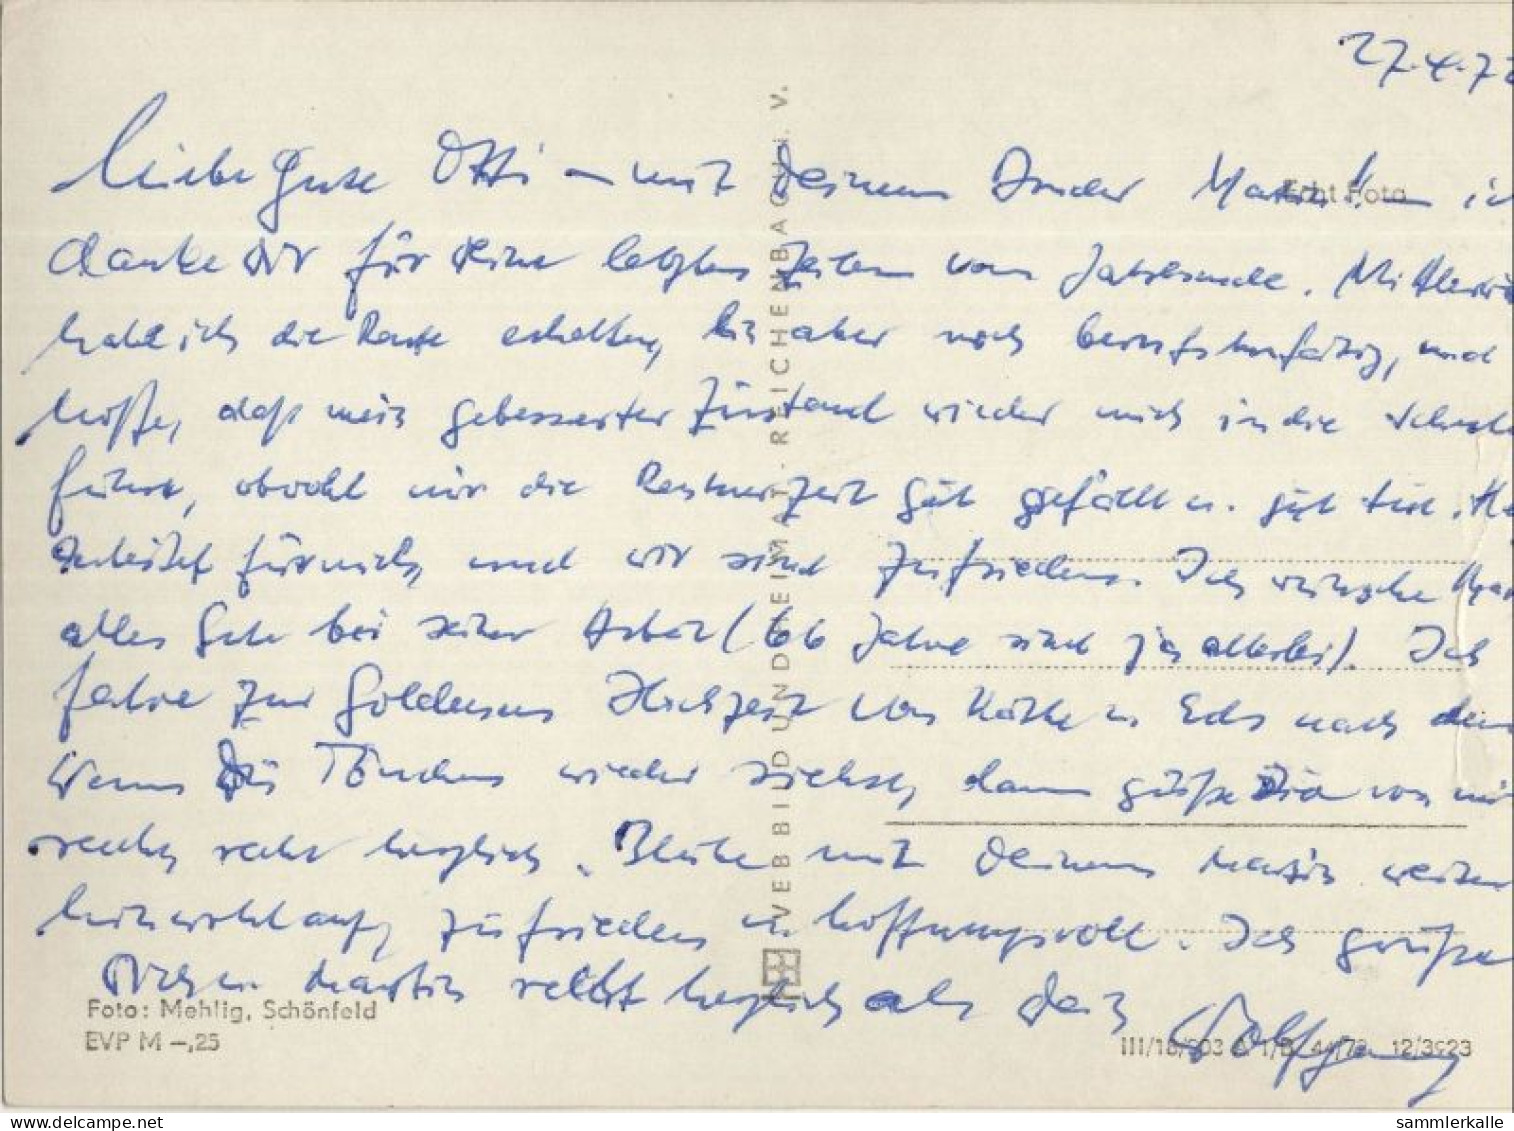 27.4.72
Liebe gute Otti – mit Deinem Bruder Martin! – ich
Echt Foto
danke Dir für Deine letzten Zeilen vom Jahresende. Mittlerw
habe ich die Rente erhalten, bin aber noch berufsunfähig, und
hoffe, daß mein gebesserter Zustand wieder mich in die Schule
führt, obwohl mir die Rentnerzeit gut gefällt u. gut tut.
arbeitet für mich, und wir sind zufrieden. Ich wünsche Mar
alles Gute bei seiner Arbeit (66 Jahre sind ja allerlei). Ich
fahre zur Goldenen Hochzeit von Käthe u. nach dem
Wenn Du Tönchen wieder siehst, dann grüße sie von mir
recht, recht herzlich. Bleibe mit Deinem Martin weiter
hin wohlauf, zufrieden u. hoffnungsvoll. Ich grüße
Dich u. Martin selbst herzlich als Dein Wolfgang
VEB BILD UND HEIMAT REICHENBACH I. V.
Foto: Mehlig, Schönfeld
EVP M –,25
12/3923
delcampe.net
sammlerkalle